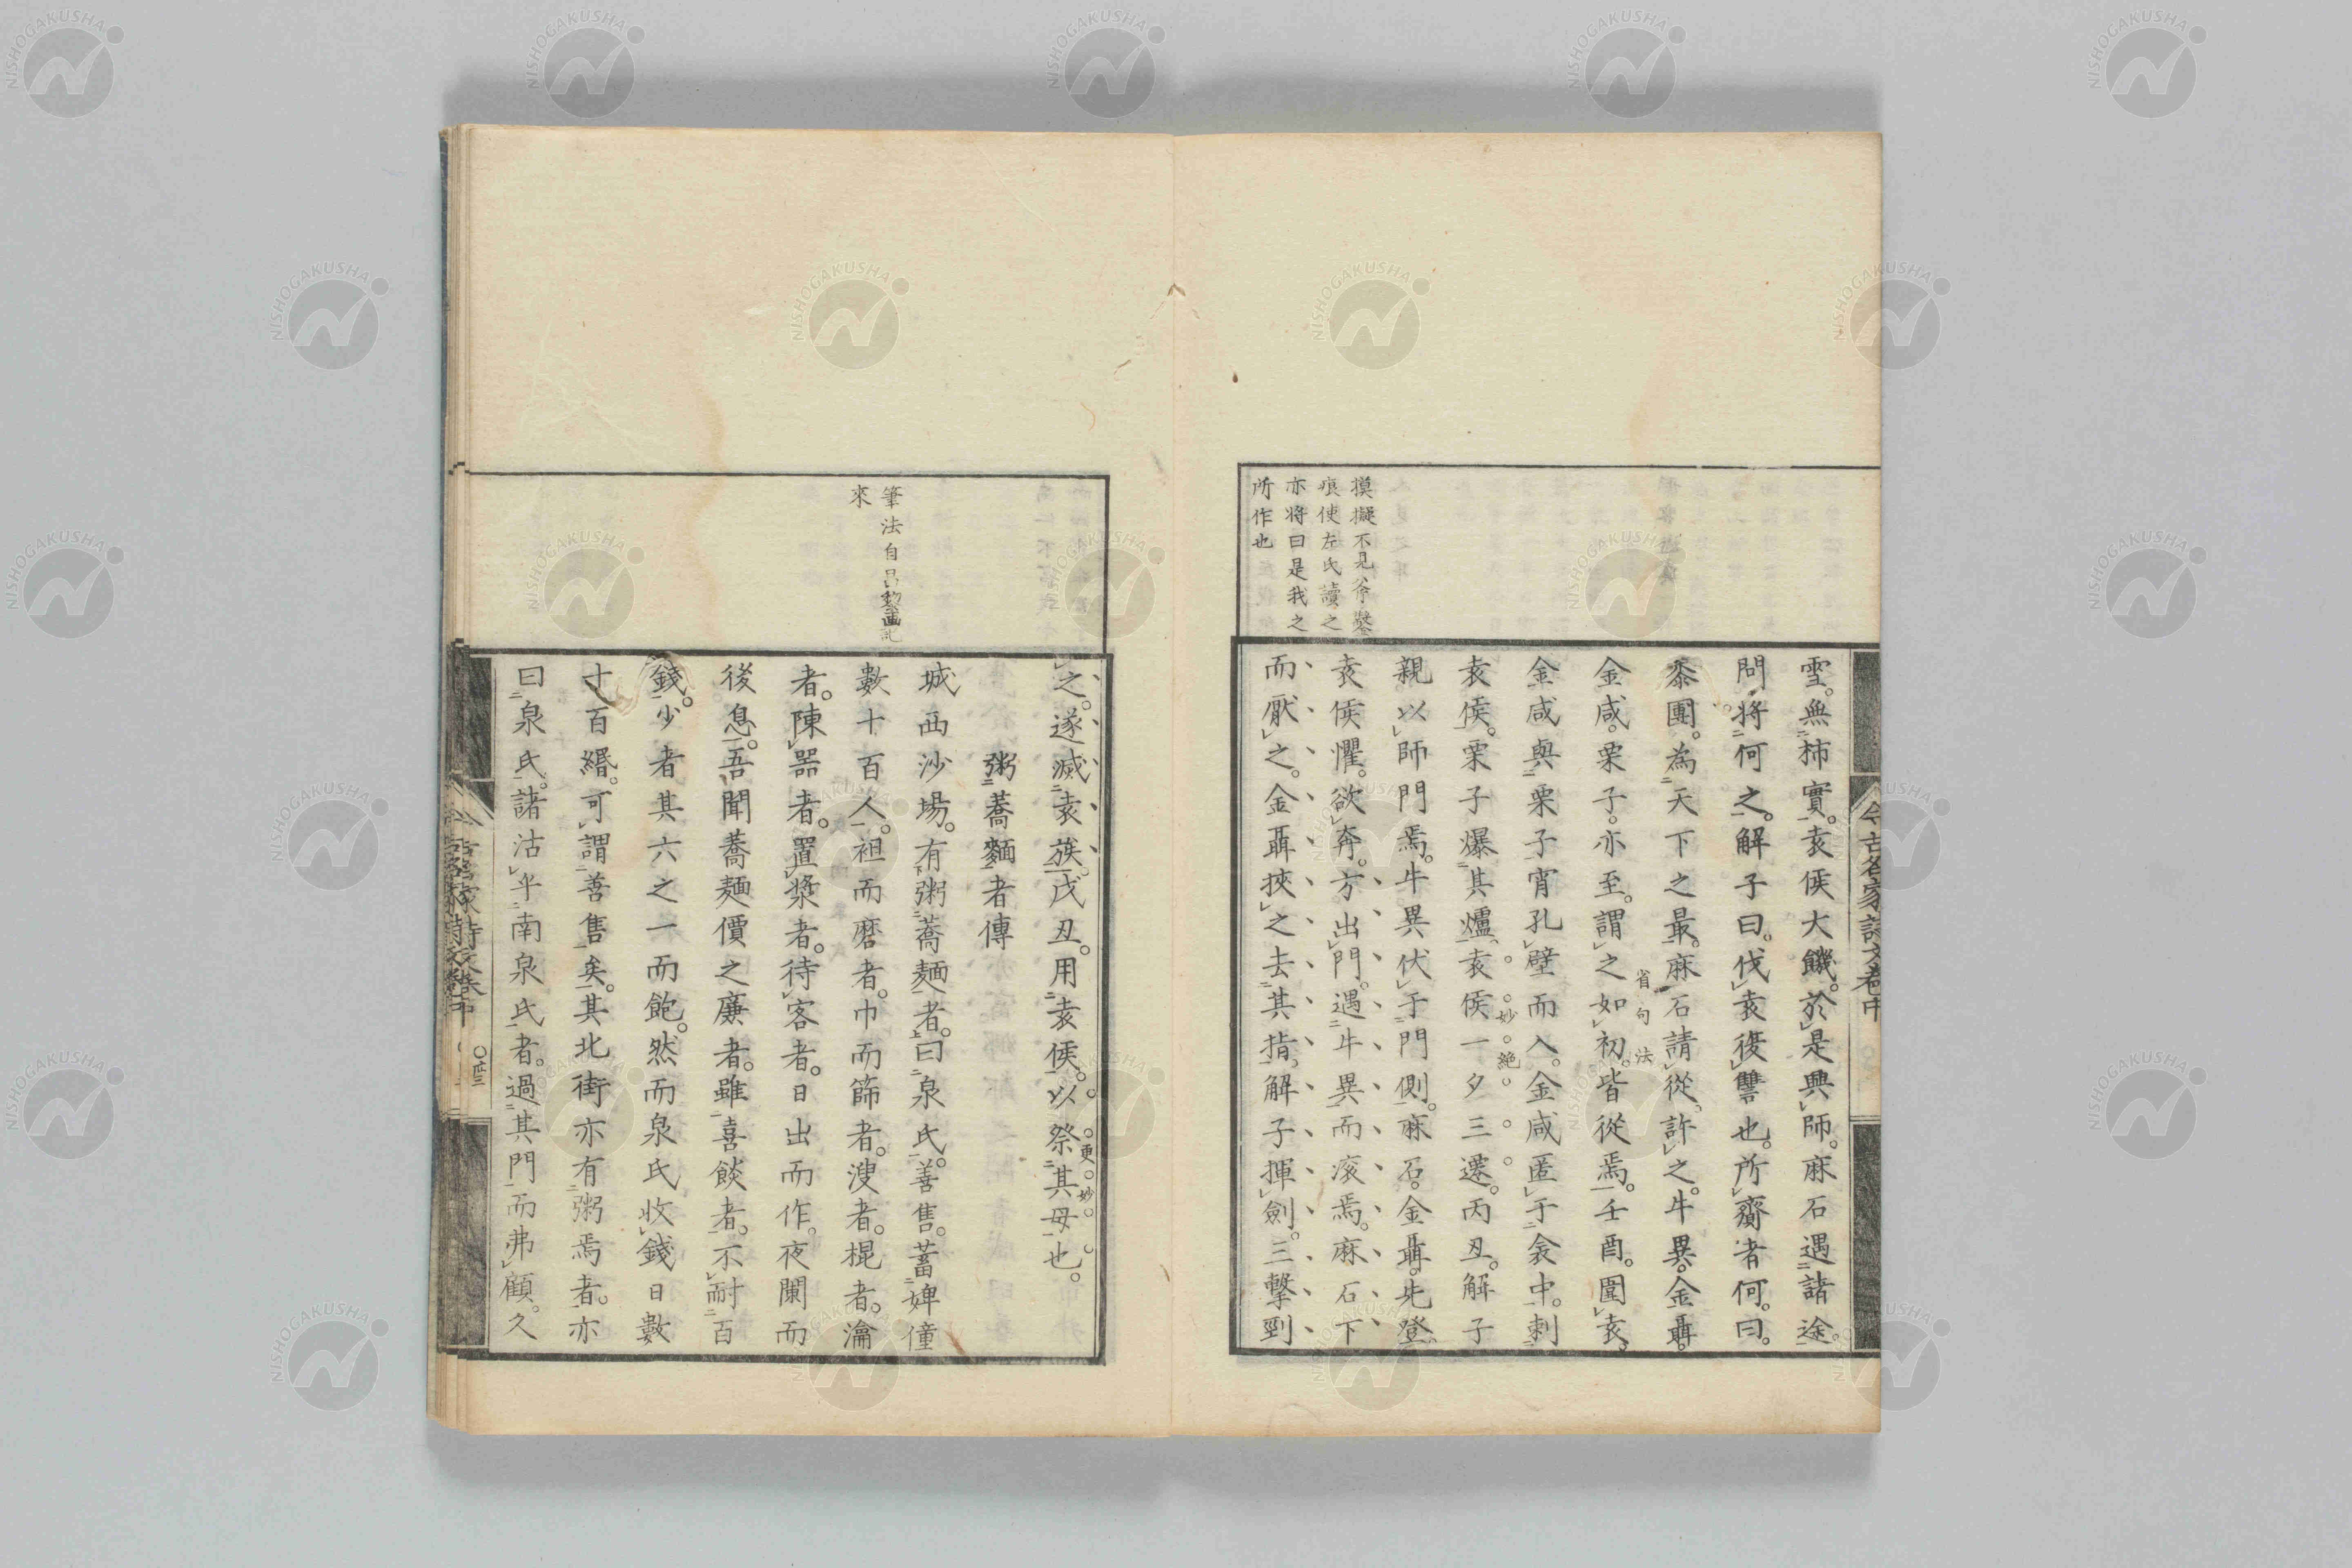 今古名家詩文卷中
摸擬不見斧鑿
痕使左氏讀之
亦將曰是我之
所作也
雪。無柿實。袁侯大饑。於是興師。麻石遇諸途。
問。將何之。解子曰。伐袁復讐也。所齎者何。曰。
黍團。為天下之最。麻石請從。許之。牛異。金聶。
金咸。栗子。亦至。謂之如初。皆從焉。壬酉。圍袁。
省句法
金咸與栗子宵孔壁而入。金咸匿于衾中。刺
袁侯。栗子爆其爐。袁侯一夕三遷。丙丑。解子
妙絶
親以師門焉。牛異伏于門側。麻石。金聶。先登。
袁侯懼。欲奔。方出門。遇牛異而滾焉。麻石下
而厭之。金聶挾之去其指。解子揮劍。三擊剄
之。遂滅袁族。戊丑。用袁侯。以祭其母也。
更妙
粥蕎麵者傳
筆法自
來
城西沙場。有粥蕎麵者。曰泉氏。善售。蓄婢僮
數十百人。袒而磨者。巾而篩者。溲者。棍者。瀹
者。陳噐者。置漿者。待客者。日出而作。夜闌而
後息。吾聞蕎麵價之廉者。雖喜餤者。不耐百
錢。少者其六之一而飽。然而泉氏收錢日數
十百緡。可謂善售矣。其北街亦有粥焉者。亦
曰泉氏。諸沽乎南泉氏者。過其門而弗顧。久